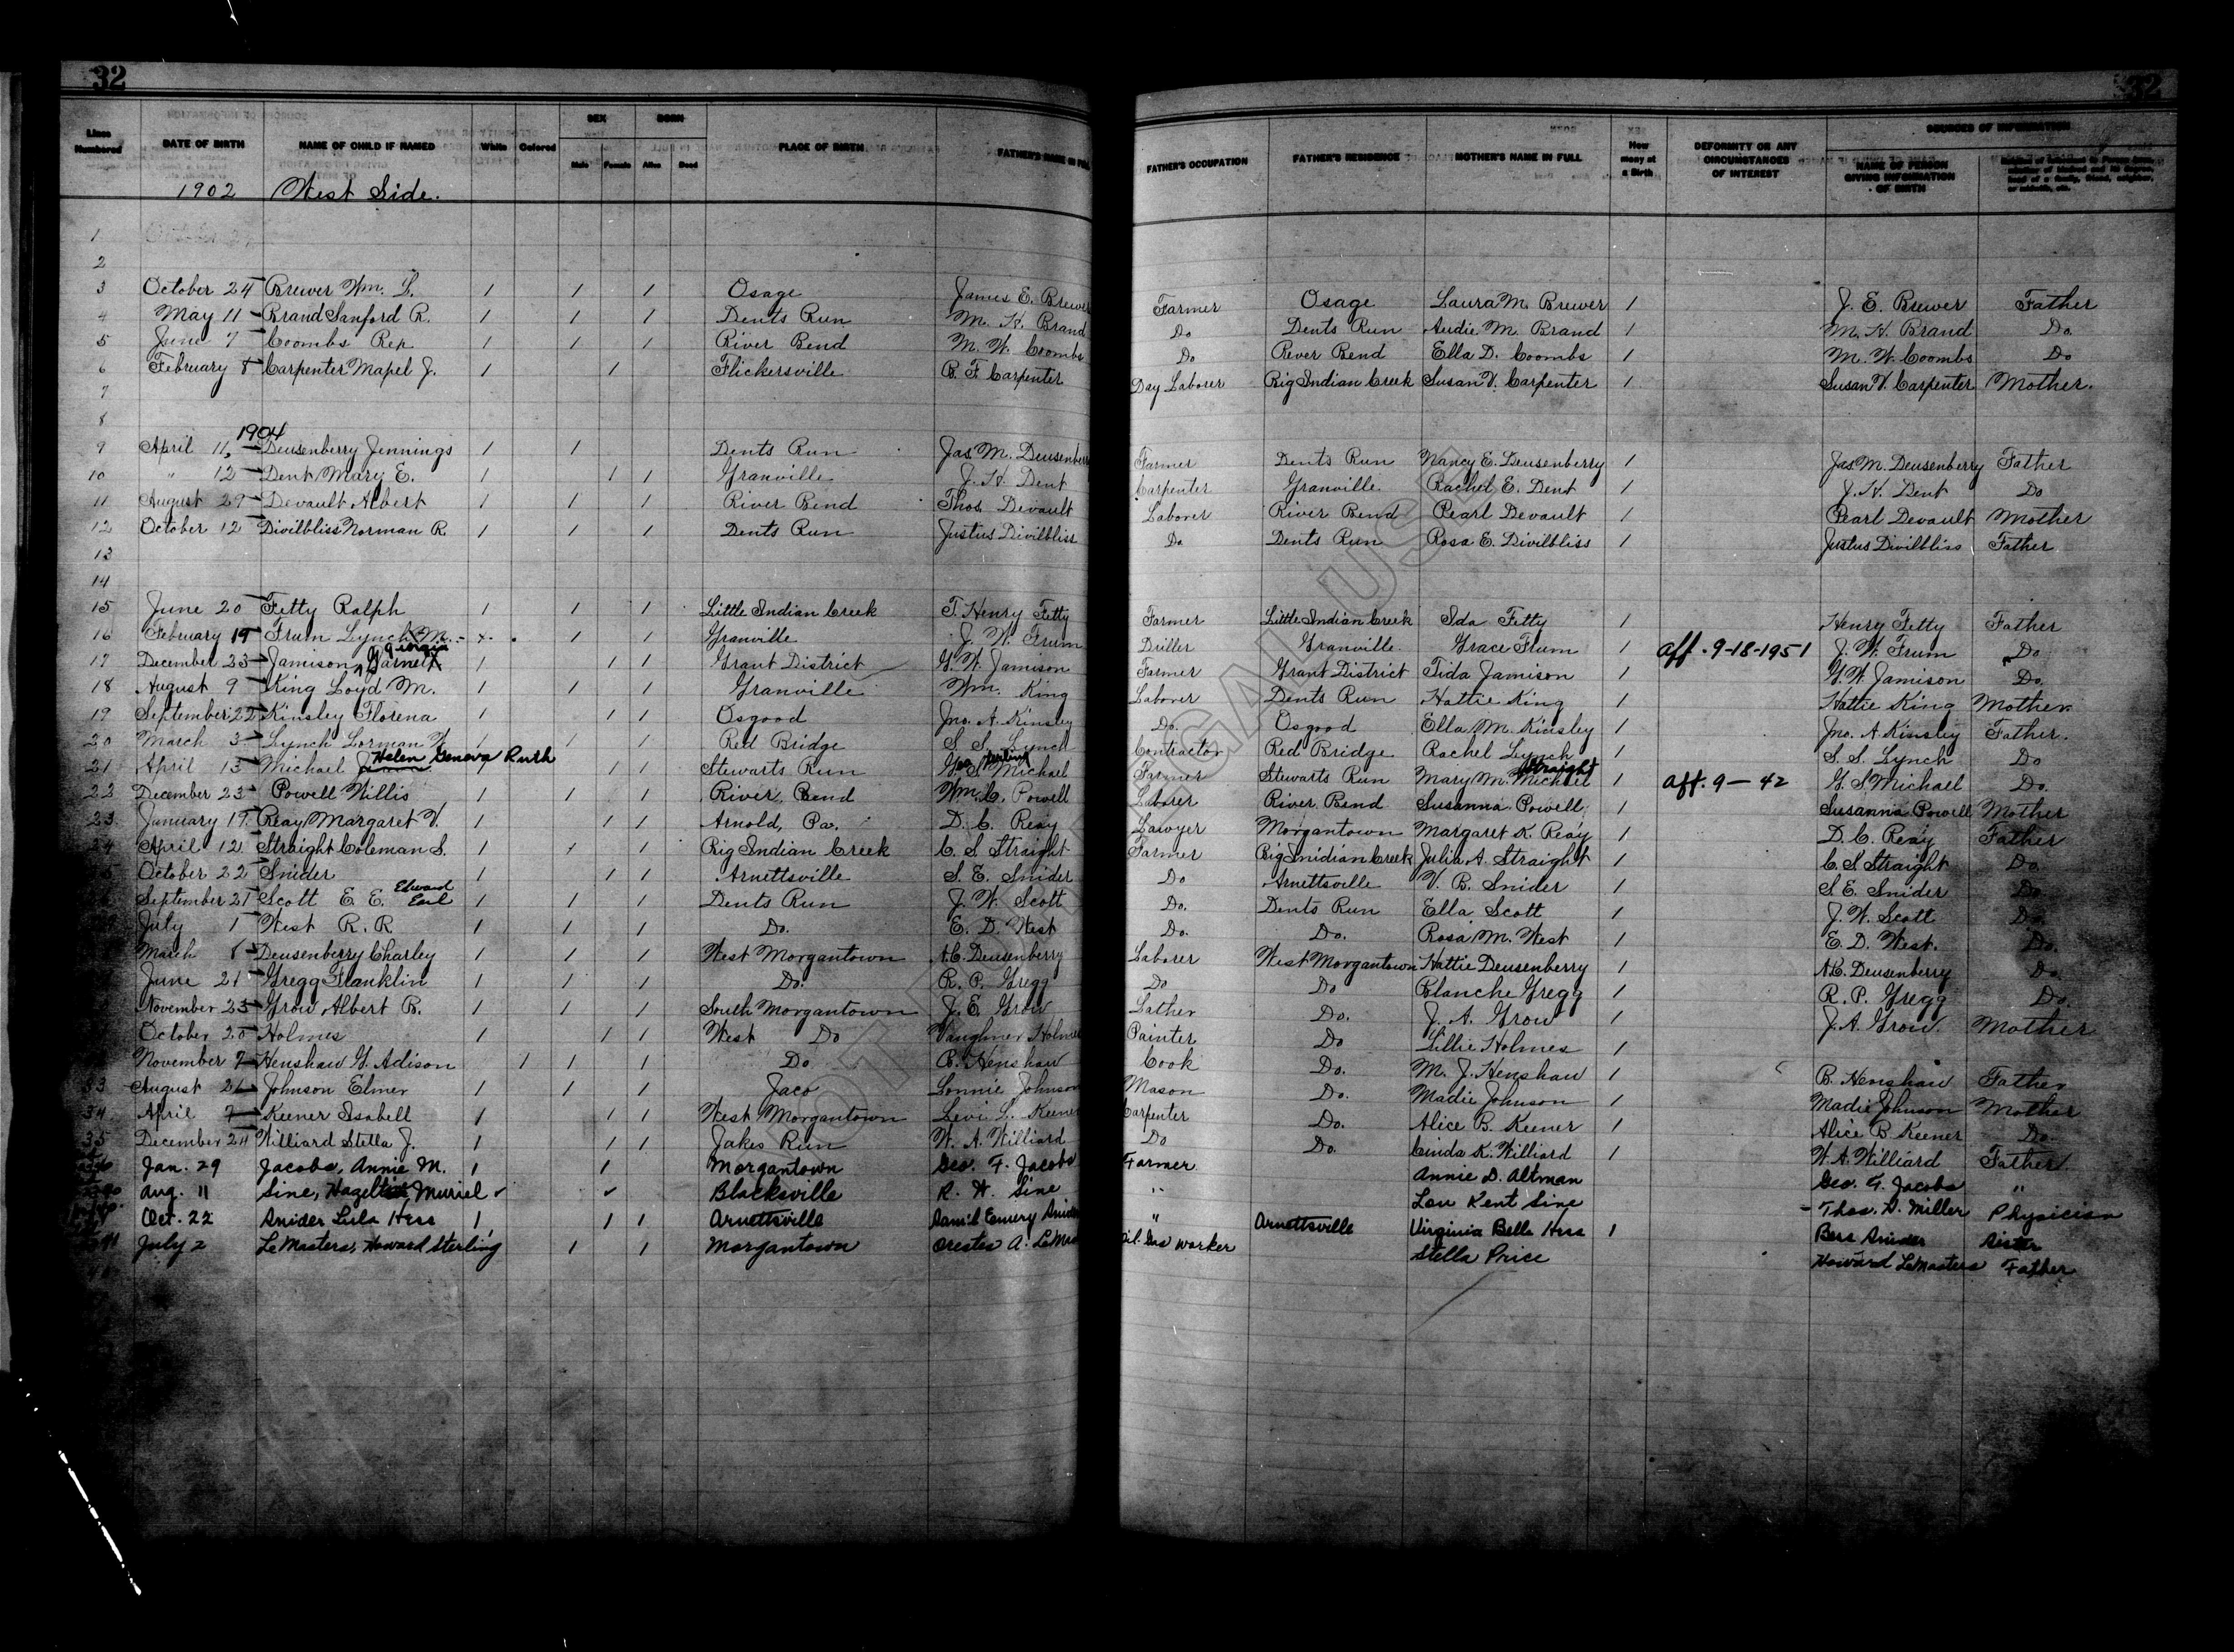 32 32
Lines Numbered DATE OF BIRTH NAME OF CHILD IF NAMED White Colored SEX Male Female BORN Alive Dead PLACE OF BIRTH FATHER'S NAME IN FULL FATHER'S OCCUPATION FATHER'S RESIDENCE MOTHER'S NAME IN FULL How many at a Birth DEFORMITY OR ANY CIRCUMSTANCES OF INTEREST SOURCES OF INFORMATION NAME OF PERSON GIVING INFORMATION OF BIRTH
1902 West Side.
1
2
3 October 24 Brewer Wm. L. / / / Osage James E. Brewer Farmer Osage Laura M. Brewer / J. E. Brewer Father
4 May 11 Brand Sanford R. / / / Dents Run M. H. Brand Do Dents Run Audie M. Brand / M. H. Brand Do.
5 June 7 Coombs Rex / / / River Bend M. W. Coombs Do River Bend Ella D. Coombs / M. W. Coombs Do
6 February 8 Carpenter Mapel J. / / Flickersville B. F. Carpenter Day Laborer Big Indian Creek Susan V. Carpenter / Susan V. Carpenter Mother.
7
8
1904
9 April 11, Deusenberry Jennings / / Dents Run Jas M. Deusenberry Farmer Dents Run Nancy E. Deusenberry / Jas M. Deusenberry Father
10 " 12 Dent Mary E. / / / Granville J. H. Dent Carpenter Granville Rachel E. Dent / J. H. Dent Do
11 August 29 Devault Albert / / / River Bend Thos Devault Laborer River Bend Pearl Devault / Pearl Devault Mother
12 October 12 Divilbliss Norman R. / / / Dents Run Justus Divilbliss Do Dents Run Rosa E. Divilbliss / Justus Divilbliss Father
13
14
15 June 20 Fetty Ralph / / / Little Indian Creek T. Henry Fetty Farmer Little Indian Creek Ida Fetty / Henry Fetty Father
16 February 19 Frum Lynch M. x / / Granville J. W. Frum Driller Granville Grace Frum / aff. 9-18-1951 J. W. Frum Do
17 December 23 Jamison Georgia Garnet / / / Grant District G. W. Jamison Farmer Grant District Tida Jamison / G. W. Jamison Do.
18 August 9 King Loyd M. / / / Granville Wm. King Laborer Dents Run Hattie King / Hattie King Mother
19 September 22 Kinsley Florena / / / Osgood Jno. A. Kinsley Do. Osgood Ella M. Kinsley / Jno. A. Kinsley Father.
20 March 3 Lynch Lorman W. / / / Red Bridge S. S. Lynch Contractor Red Bridge Rachel Lynch / S. S. Lynch Do
21 April 13 Michael Helen Geneva Ruth / / / Stewarts Run G. S. Michael Farmer Stewarts Run Mary M. Michael Straight / aff. 9 - 42 G. S. Michael Do.
22 December 23 Powell Willis / / / River Bend Wm. C. Powell Laborer River Bend Susanna Powell / Susanna Powell Mother
23 January 17 Reay Margaret V. / / / Arnold, Pa. D. C. Reay Lawyer Morgantown Margaret K. Reay / D. C. Reay Father
24 April 12 Straight Coleman S. / / / Big Indian Creek C. S. Straight Farmer Big Inidian Creek Julia A. Straight / C. S. Straight Do.
October 22 Snider / / / Arnettsville S. E. Snider Do Arnettsville V. B. Snider / S. E. Snider Do
September 21 Scott E. E. Edward Earl / / / Dents Run J. W. Scott Do. Dents Run Ella Scott / J. W. Scott Do
July 1 West R. R. / / / Do. E. D. West Do. Do. Rosa M. West / E. D. West. Do.
March 8 Deusenberry Charley / / / West Morgantown A. C. Deusenberry Laborer West Morgantown Hattie Deusenberry / A. C. Deusenberry Do
June 21 Gregg Franklin / / / Do. R. P. Gregg Do Do Blanche Gregg / R. P. Gregg Do.
November 23 Grow Albert B. / / / South Morgantown J. E. Grow Lather Do. J. A. Grow / J. A. Grow. Mother
October 20 Holmes / / / West Do Vaughner Holmes Painter Do Lillie Holmes /
November 7 Henshaw G. Adison / / / Do B. Henshaw Cook Do. M. J. Henshaw / B. Henshaw Father
33 August 26 Johnson Elmer / / / Jaco Lonnie Johnson Mason Do. Madie Johnson / Madie Johnson Mother
34 April 7 Keener Isabell / / / West Morgantown Levi L. Keener Carpenter Do. Alice B. Keener / Alice B Keener Do
35 December 24 Williard Stella J. / / / Jakes Run W. A. Williard Do Do. Cinda K. Williard / W. A. Williard Father
Jan. 29 Jacobs, Annie M. / / Morgantown Geo. F. Jacobs Farmer Annie D. Altman Geo. F. Jacobs "
Aug. 11 Sine, Hazel Muriel ✓ ✓ Blacksville R. H. Sine " Lou Kent Sine Thos. H. Miller Physician
Oct. 22 Snider Lula Hess / / / Arnettsville Sam'l Emory Snider " Arnettsville Virginia Belle Hess / Bess Snider Sister
July 2 LeMasters, Howard Sterling / / Morgantown Orestes A. LeMas Oil Gas Worker Stella Price Howard LeMasters Father